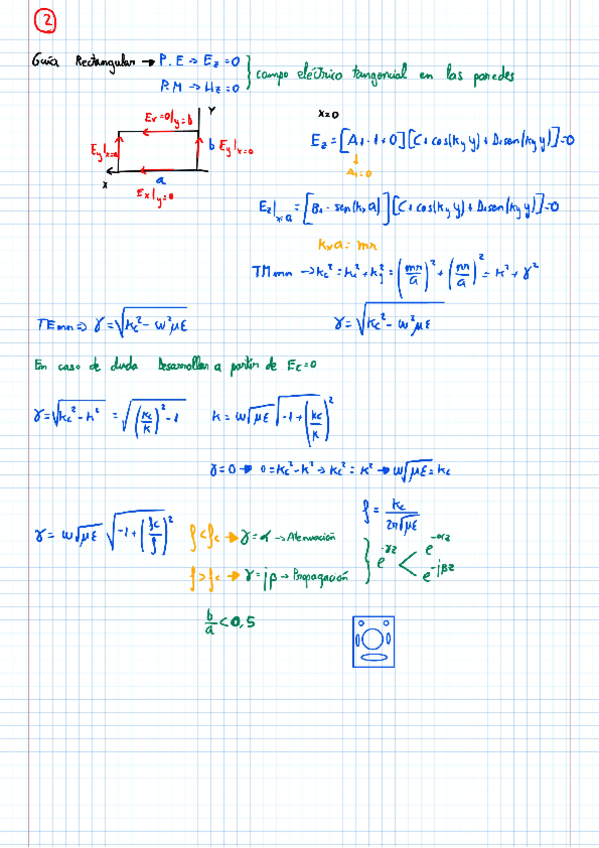 2
Guía Rectangular → P.E → Ez=0
P.M → Hz=0
campo eléctrico tangencial en las paredes
Y
Ex=0|y=b
b
Ey|x=a
Ey|x=0
x
a
Ex|y=0
x=0
Ez=[A1·1+0][C1cos(ky y)+D1sen(ky y)]=0
A1=0
Ez|x=a=[B1·sen(kx a)][C1cos(ky y)+D1sen(ky y)]=0
kx a=mπ
TMmn → kc²=kx²+ky²=(mπ/a)²+(nπ/a)²=k²+γ²
TEmn ⇒ γ=√(kc²-ω²με)
γ=√(kc²-ω²με)
En caso de duda Desarrollar a partir de Ec=0
γ=√(kc²-k²) = √((kc/k)²-1)
k=ω√(με) √(-1+(kc/k)²)
γ=0 → 0=kc²-k² → kc²=k² → ω√(με)=kc
f=kc/(2π√(με))
γ=ω√(με) √(-1+(fc/f)²)
f<fc → γ=α → Atenuación
f>fc → γ=jβ → Propagación
e^(-γz) < e^(-αz)
e^(-jβz)
b/a<0,5